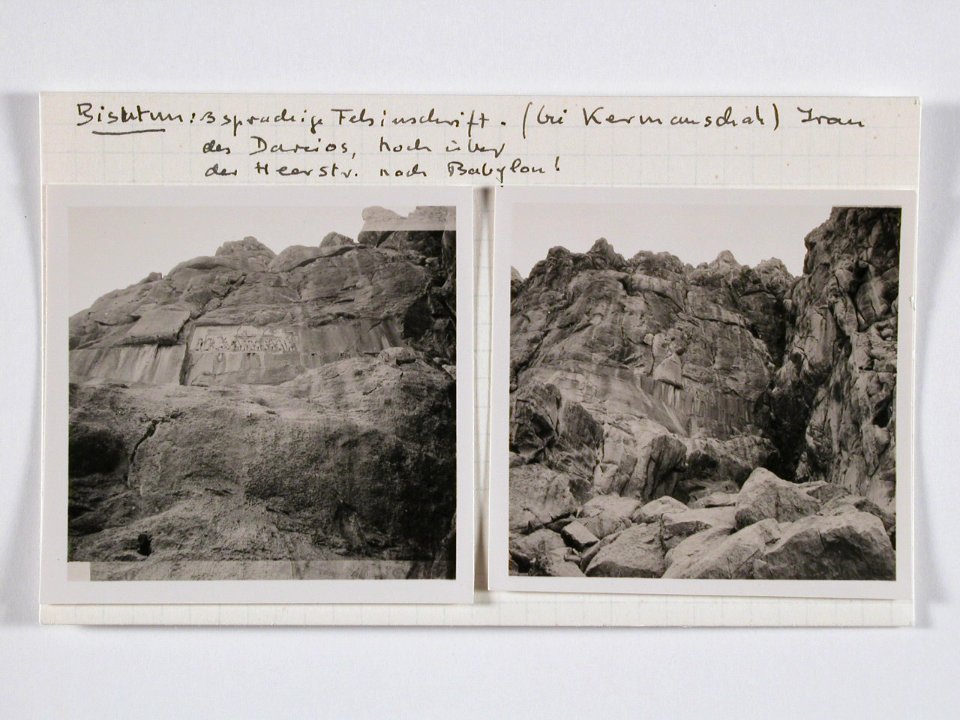 Bisutun: 3 sprachige Felsinschrift. (bei Kermanschah) Iran
des Dareios, hoch über
der Heerstr. nach Babylon!